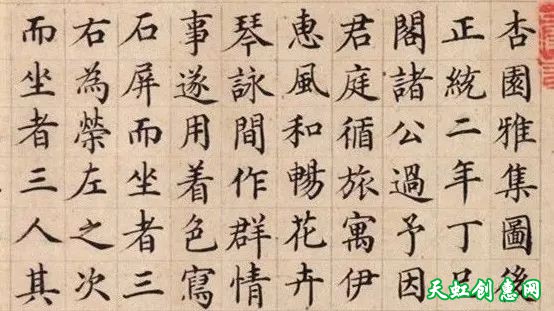 杏園雅集圖後
正統二年丁巳
閣諸公過予因
君庭循旅寓伊
惠風和暢花卉
琴詠間作群情
事遂用着色寫
石屏而坐者三
右為榮左之次
而坐者三人其
天虹创意网